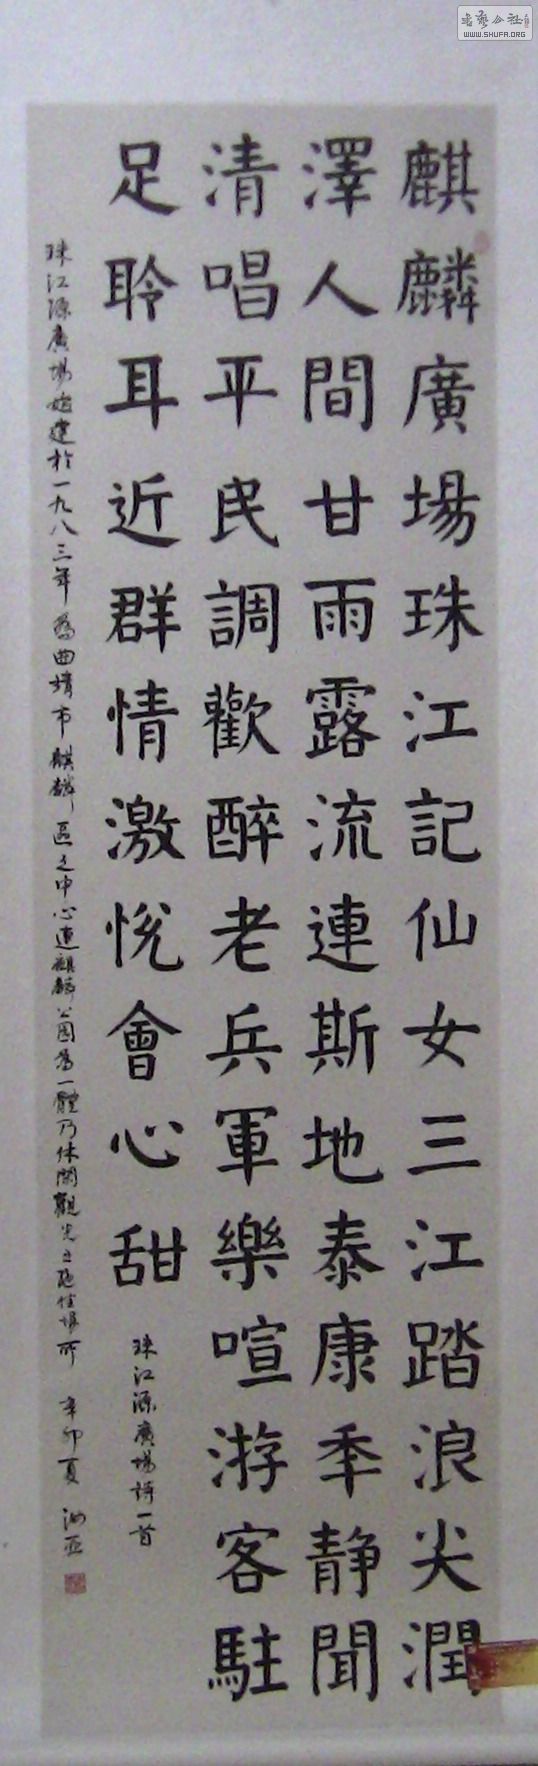 麒麟廣場珠江記仙女三江踏浪尖潤
澤人間甘雨露流連斯地泰康季靜聞
清唱平民調歡醉老兵軍樂喧游客駐
足聆耳近群情激悅會心甜
珠江源廣場詩一首
珠江源廣場始建於一九八三年為曲靖市麒麟區之中心連麒麟公園為一體乃休閑觀光之極佳場所
辛卯夏
WWW.SHUFA.ORG